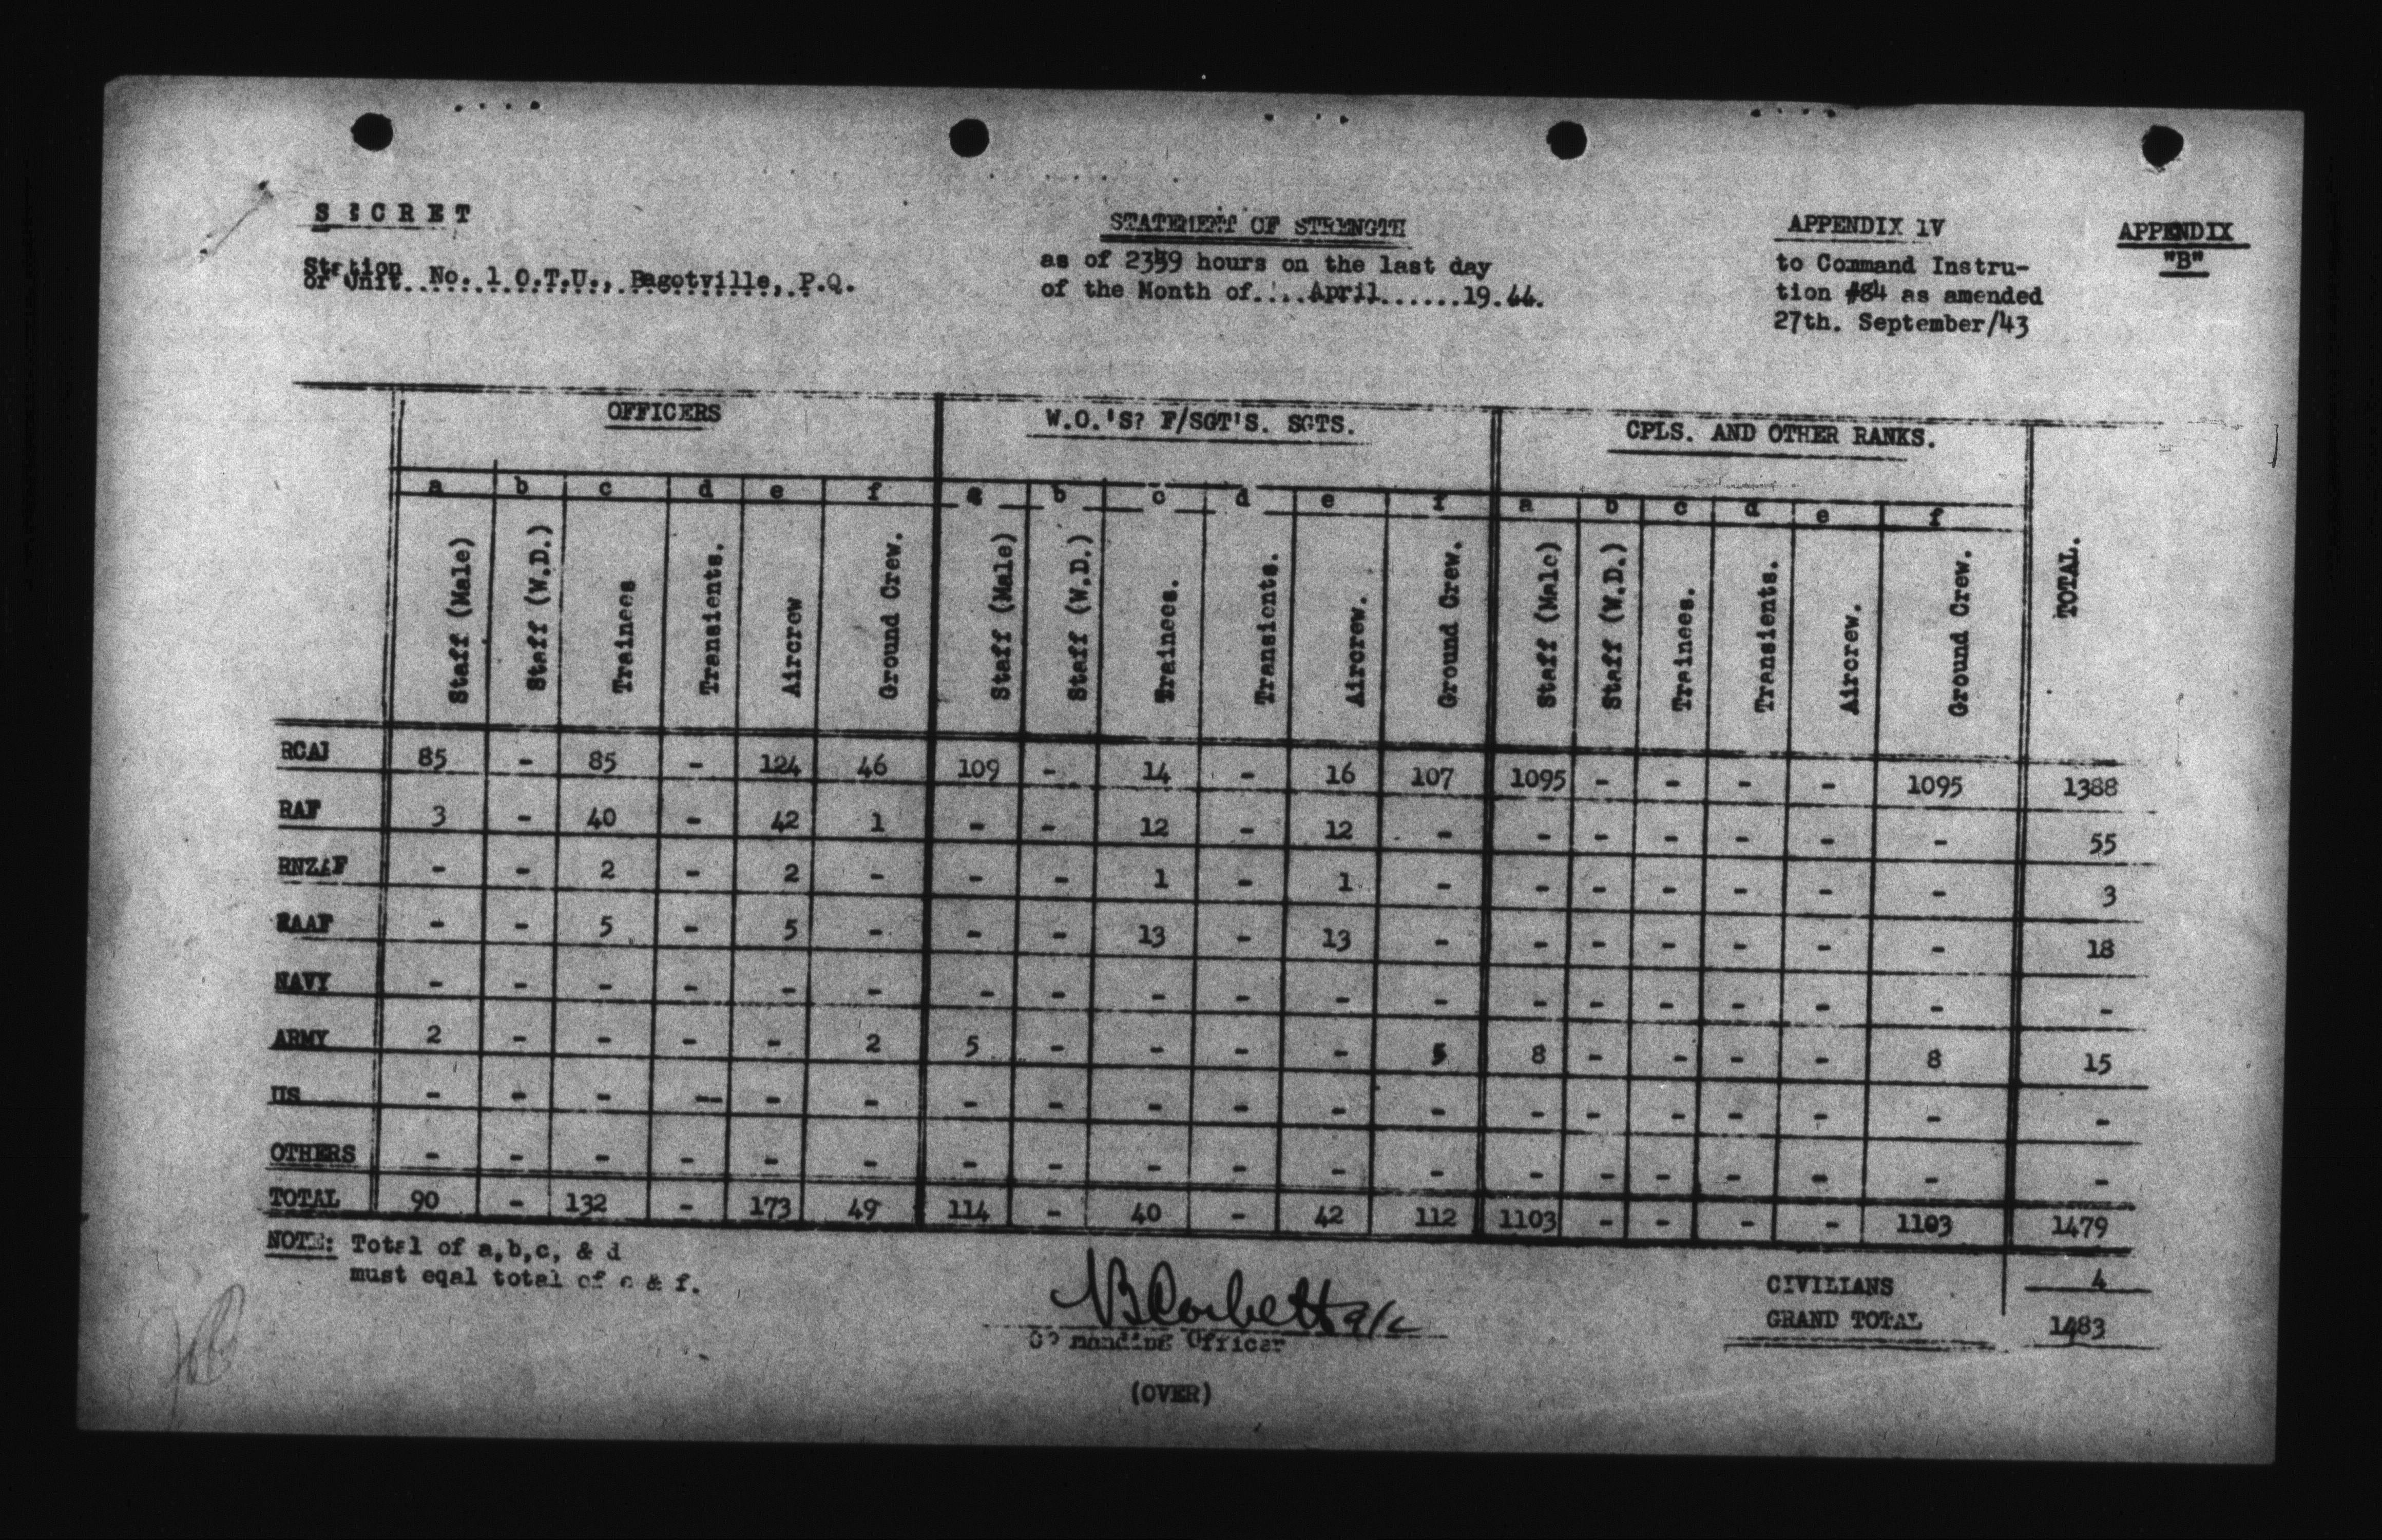 SECRET
STATEMENT OF STRENGTH
APPENDIX 1V
APPENDIX
"B"
Station
or Unit..No. 1 O.T.U., Bagotville, P.Q.
as of 2359 hours on the last day
of the Month of.....April......19.44.
to Command Instru-
tion #84 as amended
27th. September/43
OFFICERS W.O.'S? F/SGT'S. SGTS. CPLS. AND OTHER RANKS.
a b c d e f a b c d e f a b c d e f
Staff (Male) Staff (W.D.) Trainees Transients. Aircrew Ground Crew. Staff (Male) Staff (W.D.) Trainees. Transients. Aircrew. Ground Crew. Staff (Male) Staff (W.D.) Trainees. Transients. Aircrew. Ground Crew. TOTAL.
RCAF 85 - 85 - 124 46 109 - 14 - 16 107 1095 - - - - 1095 1388
RAF 3 - 40 - 42 1 - - 12 - 12 - - - - - - - 55
RNZAF - - 2 - 2 - - - 1 - 1 - - - - - - - 3
RAAF - - 5 - 5 - - - 13 - 13 - - - - - - - 18
NAVY - - - - - - - - - - - - - - - - - - -
ARMY 2 - - - - 2 5 - - - - 5 8 - - - - 8 15
US - - - - - - - - - - - - - - - - - - -
OTHERS - - - - - - - - - - - - - - - - - - -
TOTAL 90 - 132 - 173 49 114 - 40 - 42 112 1103 - - - - 1103 1479
NOTE: Total of a,b,c, & d
must eqal total of e & f.
CIVILIANS 4
GRAND TOTAL 1483
Commanding Officer
(OVER)